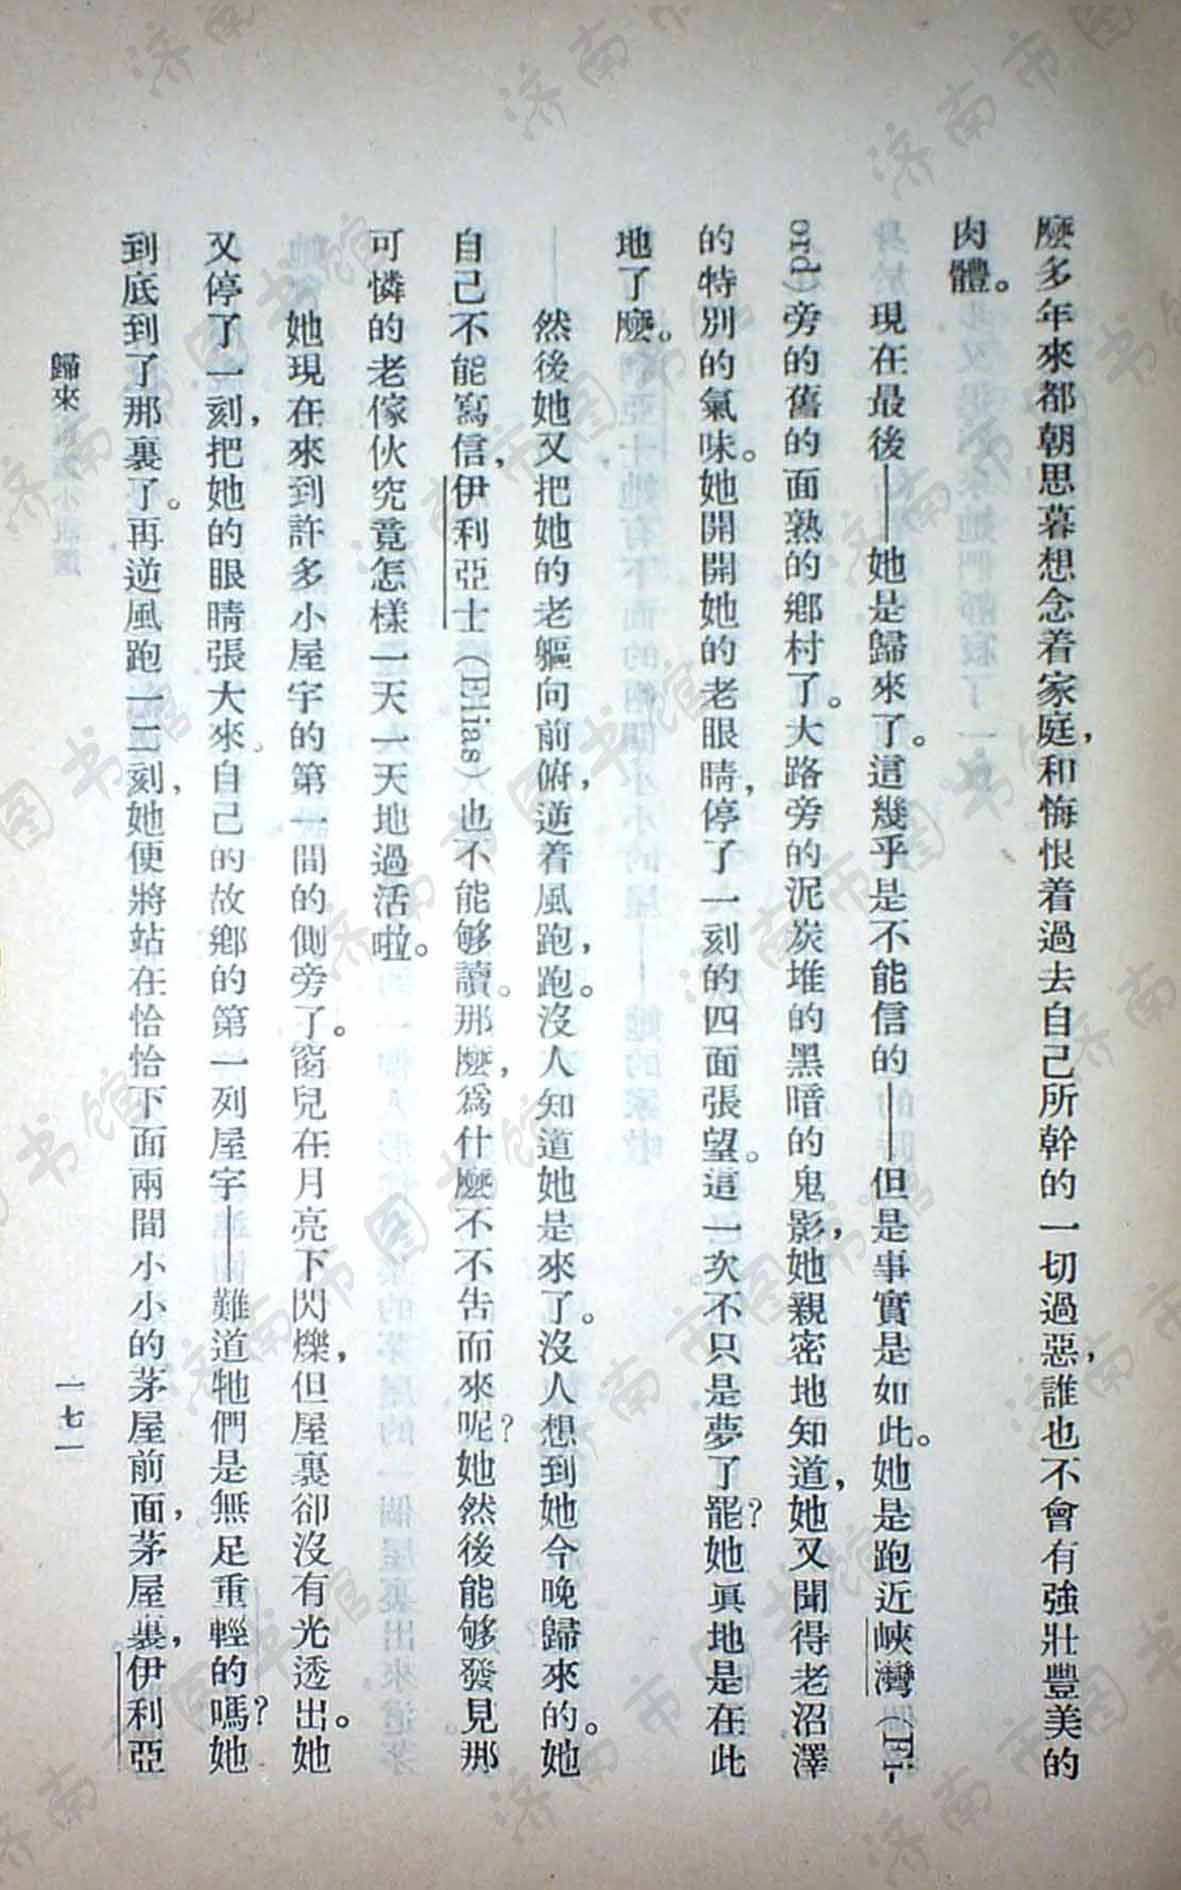 麼多年來都朝思暮想念着家庭，和悔恨着過去自己所幹的一切過惡，誰也不會有強壯豐美的
肉體。
現在最後——她是歸來了。這幾乎是不能信的——但是事實是如此。她是跑近峽灣（Fi-
ord）旁的舊的面熟的鄉村了。大路旁的泥炭堆的黑暗的鬼影，她親密地知道，她又聞得老沼澤
的特別的氣味。她開開她的老眼睛，停了一刻的四面張望。這一次不只是夢了罷？她眞地是在此
地了麼。
然後她又把她的老軀向前俯，逆着風跑，跑。沒人知道她是來了。沒人想到她今晚歸來的。她
自己不能寫信，伊利亞士（Elias）也不能够讀。那麼，爲什麼不不告而來呢？她然後能够發見那
可憐的老傢伙究竟怎樣一天一天地過活啦。
她現在來到許多小屋宇的第一間的側旁了。窗兒在月亮下閃爍，但屋裏卻沒有光透出。她
又停了一刻，把她的眼睛張大來。自己的故鄉的第一列屋宇——難道牠們是無足重輕的嗎？她
到底到了那裏了。再逆風跑一二刻，她便將站在恰恰下面兩間小小的茅屋前面，茅屋裏，伊利亞
歸來
一七一
济南市图书馆